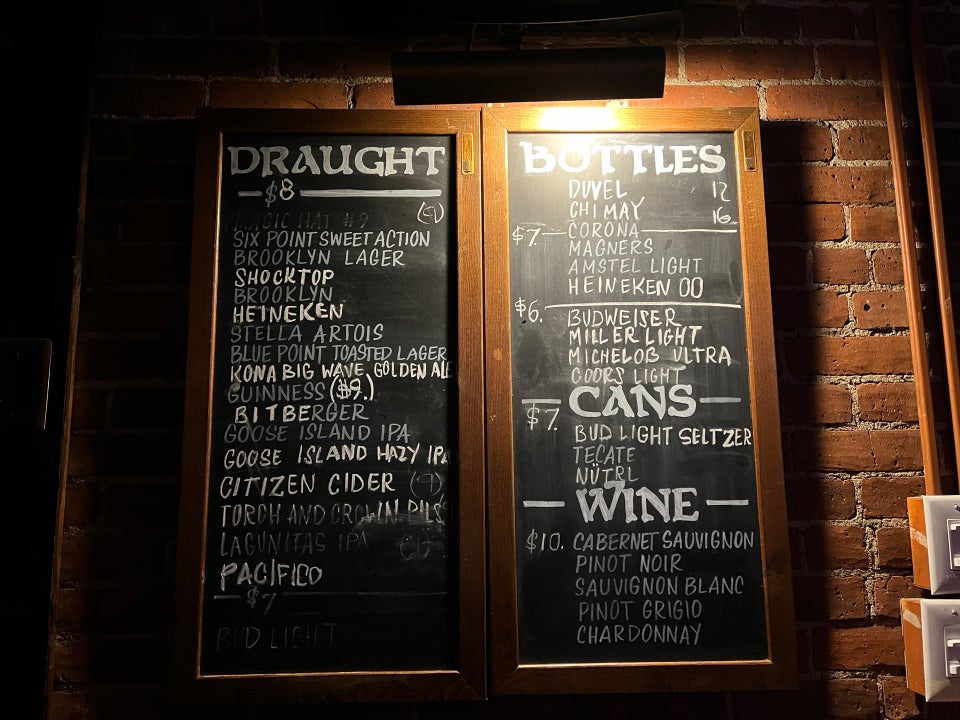 DRAUGHT
$8
MAGIC HAT #9 (9)
SIX POINT SWEET ACTION
BROOKLYN LAGER
SHOCKTOP
BROOKLYN
HEINEKEN
STELLA ARTOIS
BLUE POINT TOASTED LAGER
KONA BIG WAVE, GOLDEN ALE
GUINNESS ($9.)
BITBERGER
GOOSE ISLAND IPA
GOOSE ISLAND HAZY IPA
CITIZEN CIDER (9)
TORCH AND CROWN PILS
LAGUNITAS IPA
PACIFICO
$7
BUD LIGHT
BOTTLES
DUVEL 12
CHIMAY 16
$7. CORONA
MAGNERS
AMSTEL LIGHT
HEINEKEN 00
$6. BUDWEISER
MILLER LIGHT
MICHELOB ULTRA
COORS LIGHT
CANS
$7. BUD LIGHT SELTZER
TECATE
NÜTRL
WINE
$10. CABERNET SAUVIGNON
PINOT NOIR
SAUVIGNON BLANC
PINOT GRIGIO
CHARDONNAY